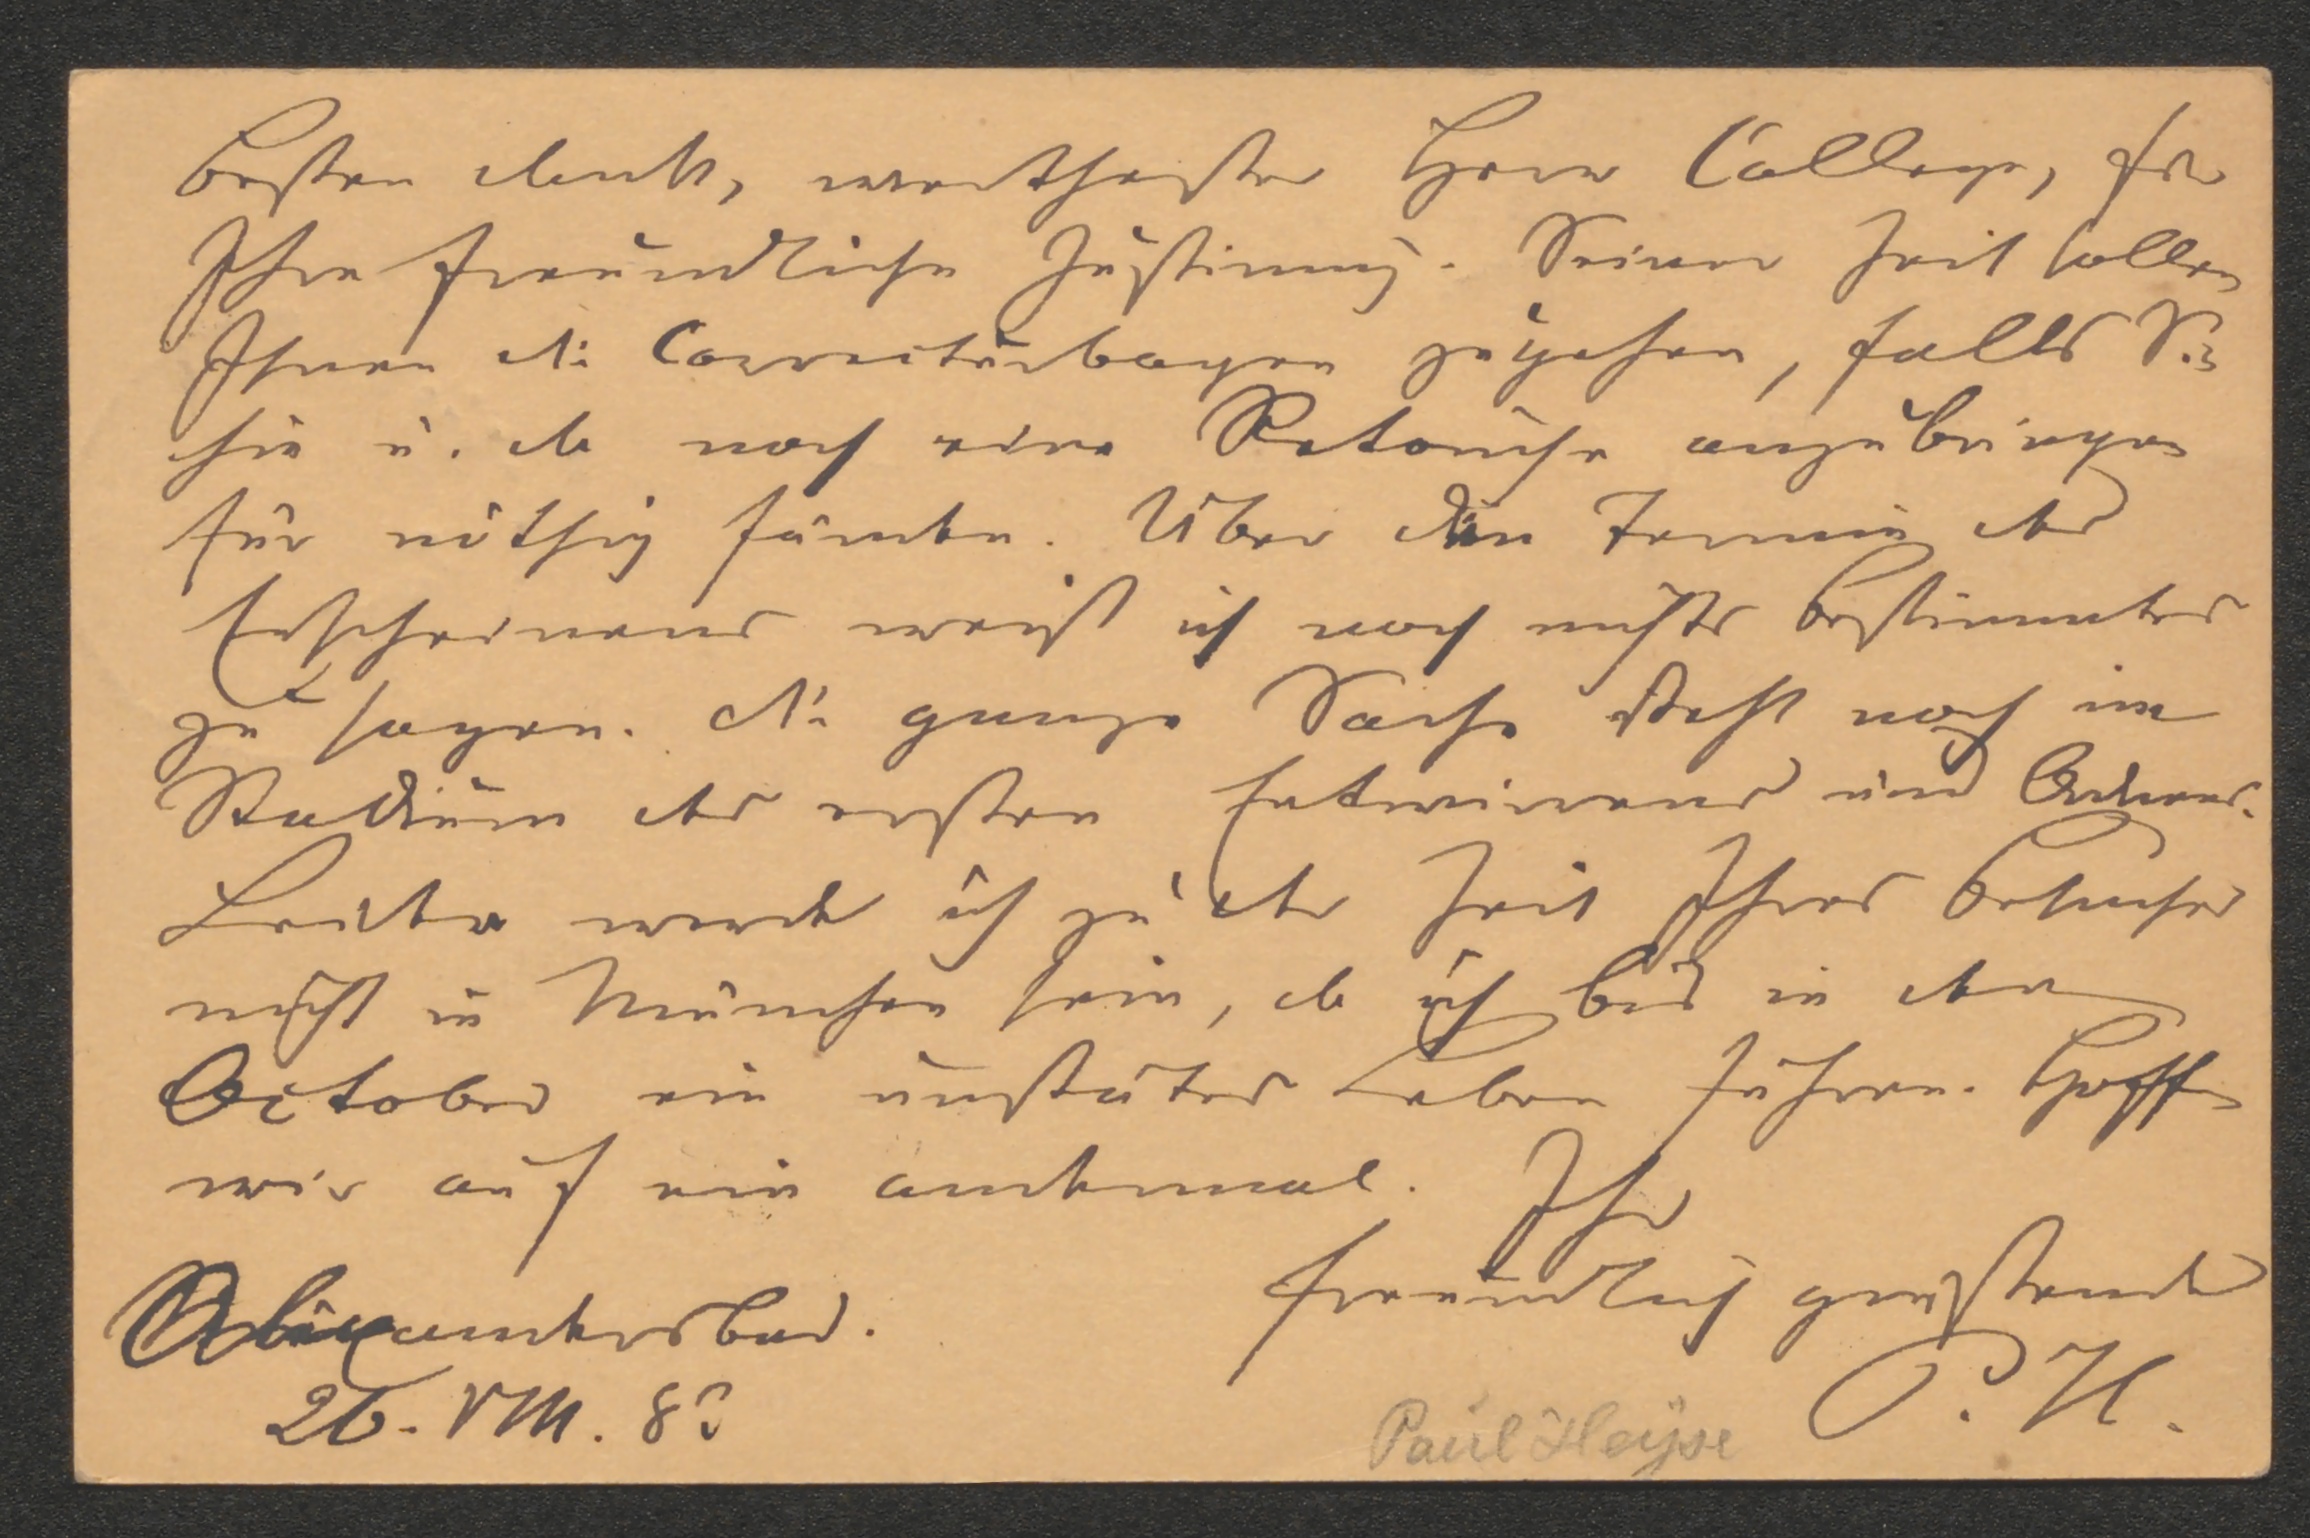 Besten Dank, werthester Herr College, für
Ihre freundliche Zustimmg. Seiner Zeit sollen
Ihnen die Correcturbogen zugehen, falls Sie
hie u. da noch eine Retouche anzubringen
für nöthig fänden. Über den Termin des
Erscheinens weiß ich noch nichts Bestimmtes
zu sagen. Die ganze Sache steht noch im
Stadium des ersten Entwirrens und Ordnens.
Leider werde ich zu der Zeit Ihres Besuches
nicht in München sein, da ich bis in den
October ein unstätes Leben führen. Hoffen
wir auf ein andermal. Ihr
freundlich grüßender
Alexandersbad. P. H.
26. VIII. 83
Paul Heyse